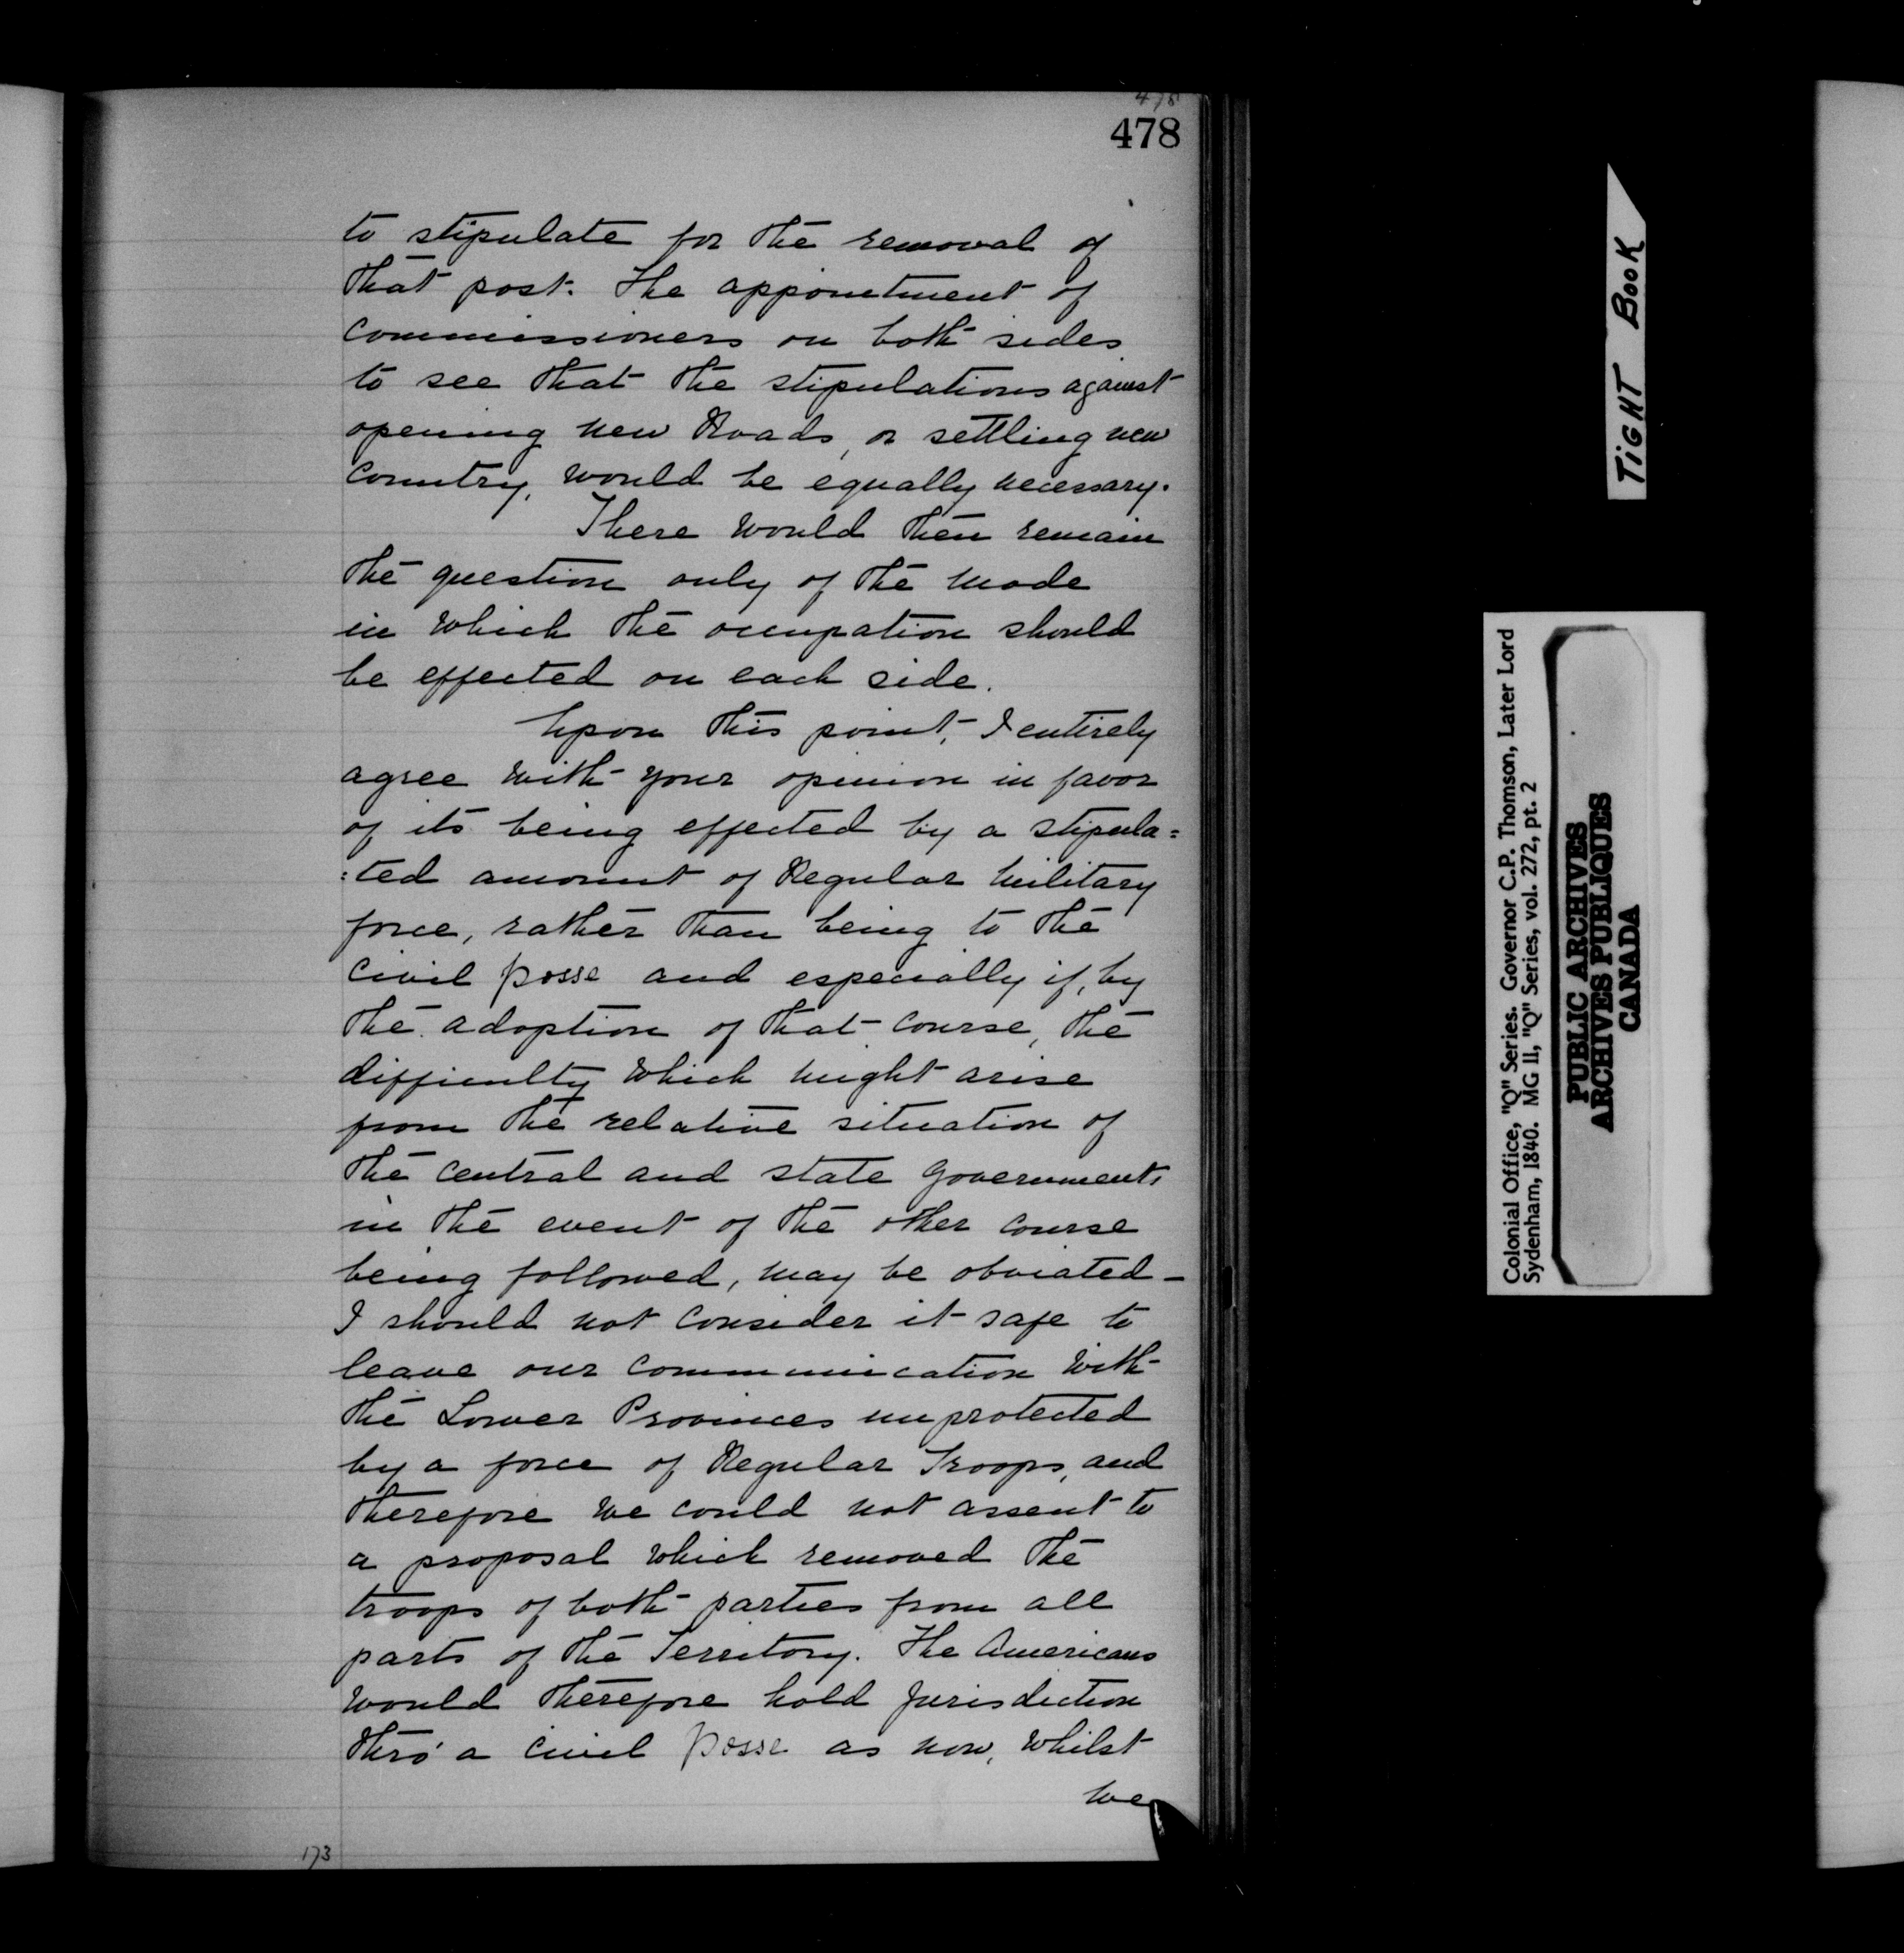 478
478
to stipulate for the removal of
that post. The appointment of
Commissioners on both sides
to see that the stipulations against
opening new Roads, or settling new
Country, would be equally necessary.
There would then remain
the question only of the mode
in which the occupation should
be effected on each side.
Upon this point, I entirely
agree with your opinion in favor
of its being effected by a stipula=
:ted amount of Regular Military
force, rather than being to the
Civil posse and especially if, by
the adoption of that course, the
difficulty which might arise
from the relative situation of
the Central and State Governments
in the event of the other course
being followed, may be obviated_
I should not consider it safe to
leave our communication with
the Lower Provinces unprotected
by a force of Regular Troops, and
therefore we could not assent to
a proposal which removed the
troops of both parties from all
parts of the Territory. The Americans
would therefore hold Jurisdiction
thro' a Civil posse as now, whilst
we
173
TIGHT BOOK
Colonial Office, "Q" Series. Governor C.P. Thomson, Later Lord
Sydenham, 1840. MG 11, "Q" Series, vol. 272, pt. 2
PUBLIC ARCHIVES
ARCHIVES PUBLIQUES
CANADA